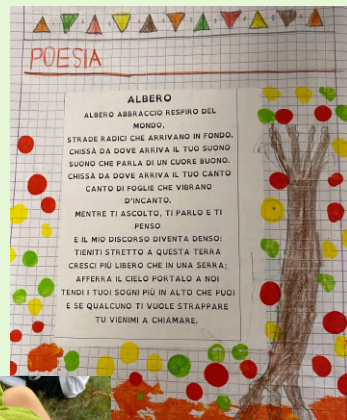 POESIA
ALBERO
ALBERO ABBRACCIO RESPIRO DEL
MONDO,
STRADE RADICI CHE ARRIVANO IN FONDO.
CHISSÀ DA DOVE ARRIVA IL TUO SUONO
SUONO CHE PARLA DI UN CUORE BUONO.
CHISSÀ DA DOVE ARRIVA IL TUO CANTO
CANTO DI FOGLIE CHE VIBRANO
D'INCANTO.
MENTRE TI ASCOLTO, TI PARLO E TI
PENSO
E IL MIO DISCORSO DIVENTA DENSO:
TIENITI STRETTO A QUESTA TERRA
CRESCI PIÙ LIBERO CHE IN UNA SERRA;
AFFERRA IL CIELO PORTALO A NOI
TENDI I TUOI SOGNI PIÙ IN ALTO CHE PUOI
E SE QUALCUNO TI VUOLE STRAPPARE
TU VIENIMI A CHIAMARE.